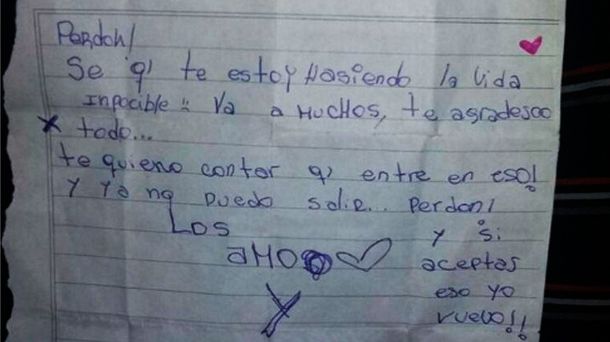 Perdon!
Se q' te estoy Hasiendo la vida
inpocible :: Ya a MUCHOS, te agradesco
x todo...
te quiero contar q' entre en eso!
y ya no puedo salir... Perdon!
Los
aMO
y
y si
aceptas
eso yo
vuelvo!!